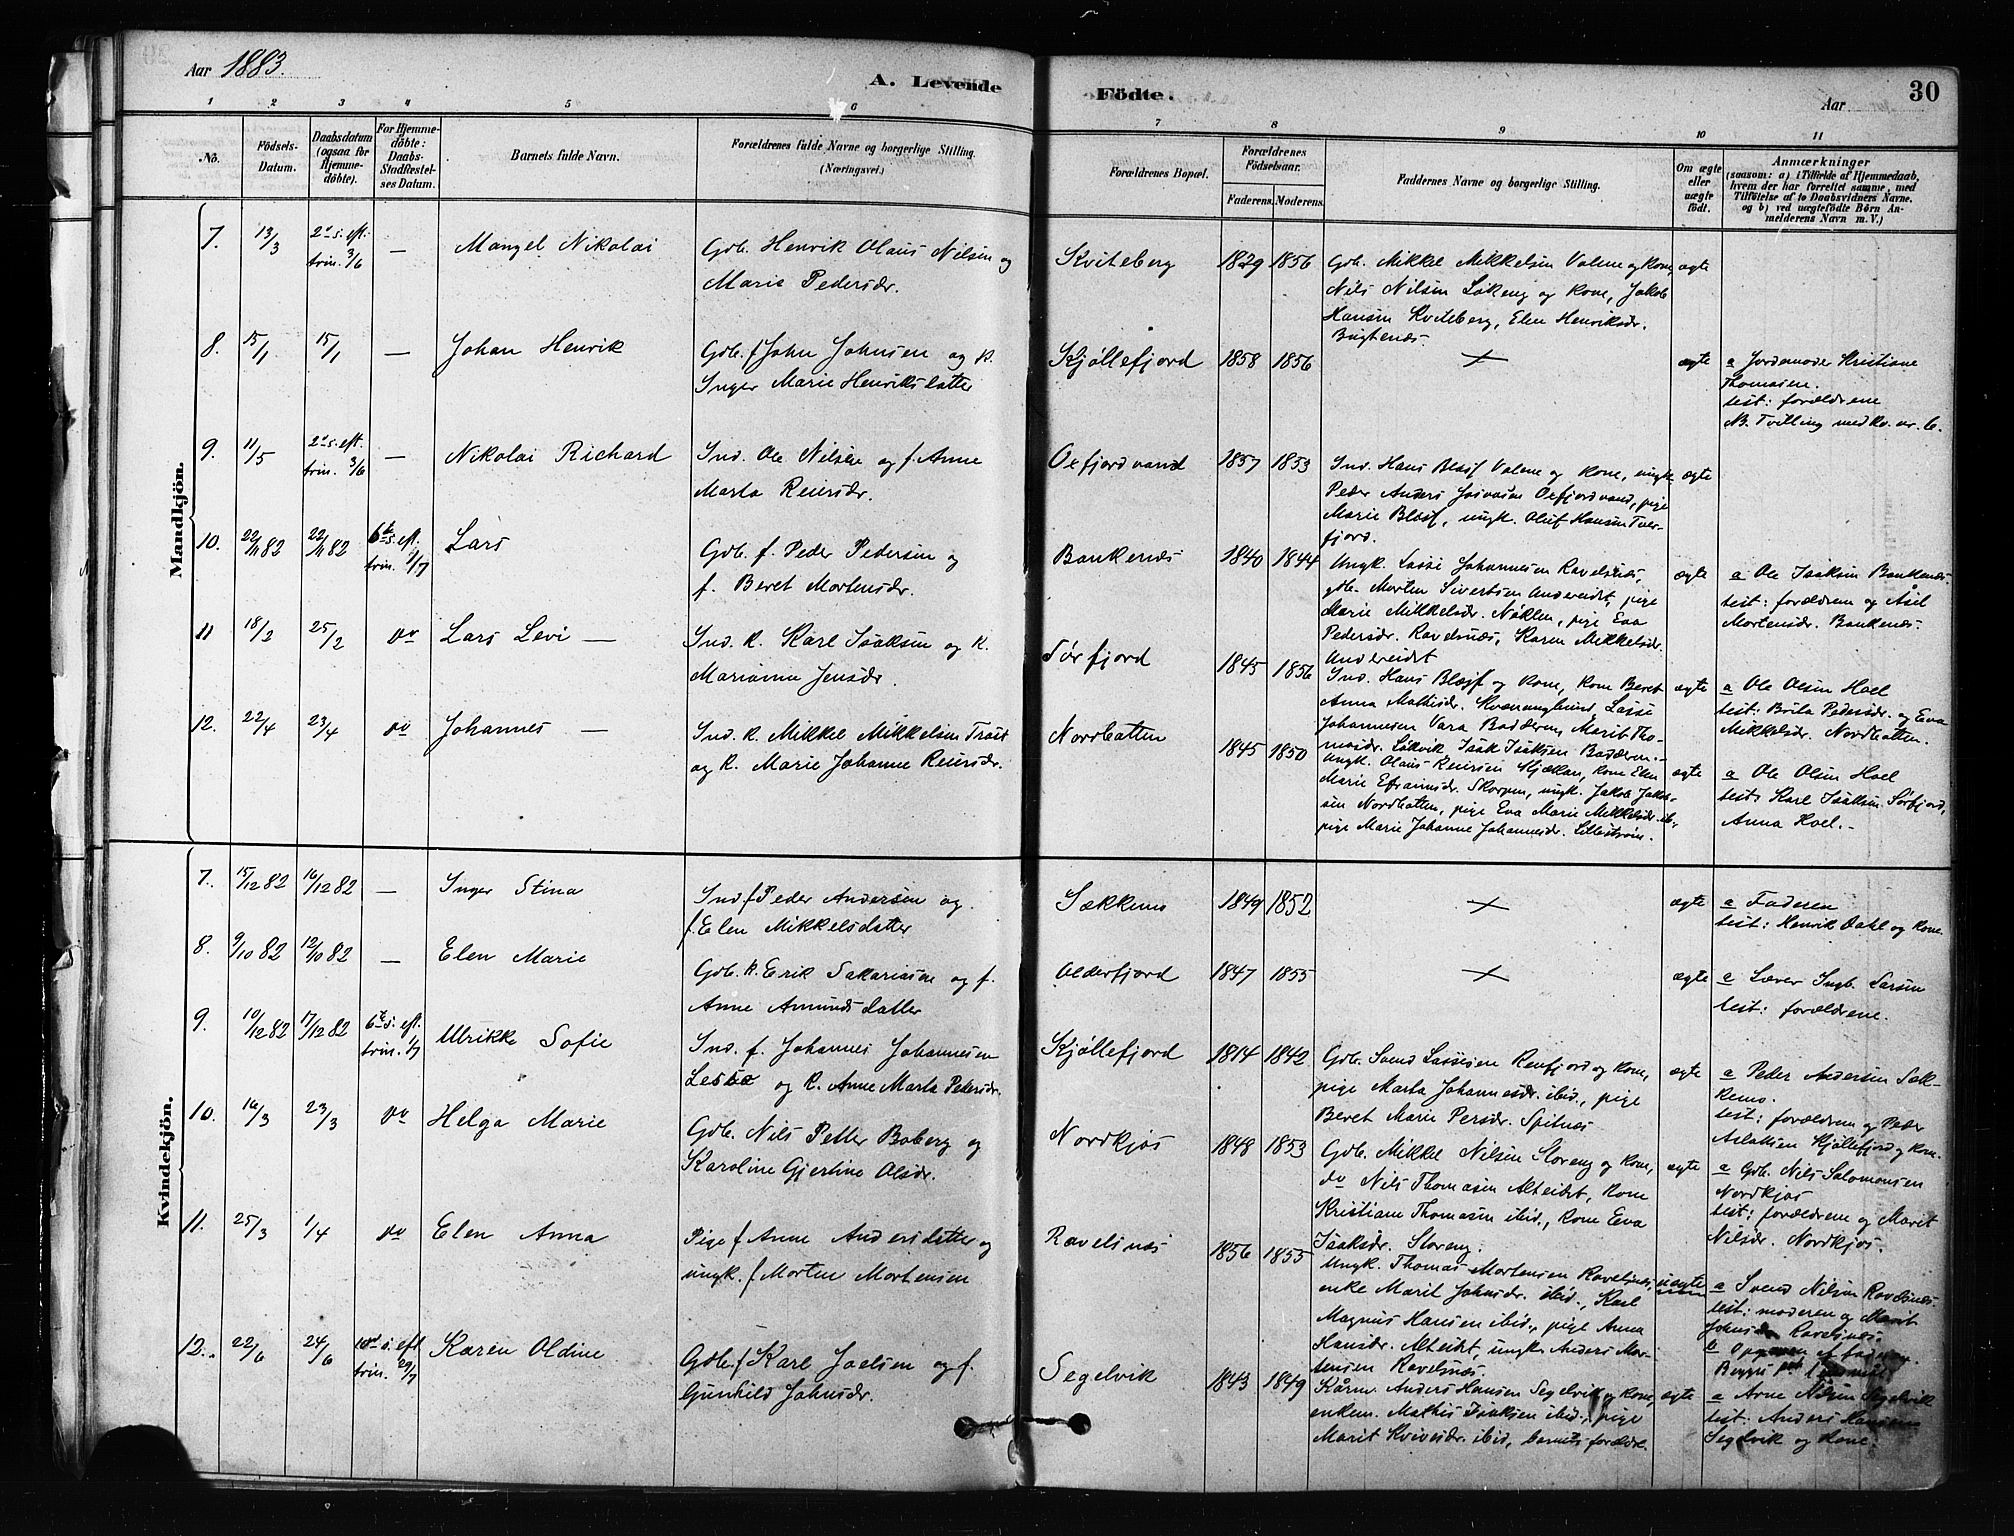 Aar 1883.
A. Levende Födte.
Aar
30
1 2 3 4 5 6 7 8 9 10 11
No.
Födsels-Datum.
Daabsdatum (ogsaa for Hjemme-döbte).
For Hjemme-döbte: Daabs-Stadfæstel-ses Datum.
Barnets fulde Navn.
Forældrenes fulde Navne og borgerlige Stilling. (Næringsvei.)
Forældrenes Bopæl.
Forældrenes Födselsaar.
Faderens. Moderens.
Faddernes Navne og borgerlige Stilling.
Om ægte eller uægte födt.
Anmærkninger
(saasom: a) i Tilfælde af Hjemmedaab, hvem der har forrettet samme, med Tilföielse af to Daabsvidners Navne. og b) ved uægtefödte Börn An-melderens Navn m. V.)
Mandkjön.
7. 13/3 2d s. eft. trin. 3/6 — Mangel Nikolai
Gdb. Henrik Olaus Nilsen og
Marie Pedersdr.
Kviteberg 1829 1856
Gdb. Mikkel Mikkelsen Valene og kone,
Nils Nilsen Løkeng og kone, Jakob
Hansen Kviteberg, Elen Henriksdr.
Bugtenæs
ægte
8. 15/1 15/1 — Johan Henrik
Gdb. f John Johnsen og k.
Inger Marie Henriksdatter
Kjøllefjord 1858 1856 + ægte
a Jordemoder Kristiane
Thomasen.
test: forældrene
NB. Tvilling med kv. nr. 6.
9. 11/5 2d s. eft. trin. 3/6 — Nikolai Richard
Ind. Ole Nilsen og f. Anne
Marta Reiersdr.
Oxfjordvand 1857 1853
Ind. Hans Blæsf Valene og kone, ungk.
Peder Anders Josvasen Oxfjordvand, pige
Marie Blæsf, ungk. Oluf Hansen Tver-
fjord.
ægte
10. 22/11 82 22/11 82 6te s. eft. trin. 1/7 Lars
Gdb. f. Peder Pedersen og
f. Beret Mortensdr.
Bankenæs 1840 1844
Ungk. Lasse Johannesen Ravelsnæs,
gdb. Morten Sivertsen Undereidet, pige
Marie Mikkelsdr. Nøklen, pige Eva
Pedersdr. Ravelsnæs, Karen Mikkelsdr.
Undereidet
ægte
a Ole Isaksen Bankenæs.
test: forældrene og Axel
Mortensdr. Bankenæs
11 18/2 25/2 do Lars Levi —
Ind. K. Karl Isaksen og K.
Marianne Jensdr.
Sørfjord 1845 1856
Ind. Hans Blæsf og kone, kone Beret
Anna Mathisdr. Kvænangbund, Lasse
Johannesen Vara Badderen, Marit Tho-
masdr. Løkvik, Isak Isaksen Badderen.
ægte
a Ole Olsen Hoel
test: Brita Pedersdr. og Eva
Mikkelsdr. Nordbotten.
12. 22/4 23/4 do Johannes —
Ind. K. Mikkel Mikkelsen Trast
og K. Marie Johanne Reiersdr.
Nordbotten 1845 1850
Ungk. Olaus Reiersen Kjækan, kone Elen
Marie Efraimsdr. Skorpen, ungk. Jakob Jakob-
sen Nordbotten, pige Eva Marie Mikkelsdr. ib.,
pige Marie Johanne Johannesdr. Lillestrøm.
ægte
a Ole Olsen Hoel
test: Karl Isaksen Sørfjord,
Anna Hoel.
Kvindekjön.
7. 15/12 82 16/12 82 — Inger Stina
Ind f Peder Andersen og
f. Elen Mikkelsdatter
Sækkemo 1849 1852 + ægte
a Faderen
test: Henrik Dahl og kone.
8. 9/10 82 12/10 82 — Elen Marie
Gdb. K. Erik Sakariasen og f.
Anne Amundsdatter
Olderfjord 1847 1855 + ægte
a Lærer Ingb. Larsen
test: forældrene.
9. 10/12 82 17/12 82 6te s. eft. trin. 1/7 Ulrikke Sofie
Ind. f. Johannes Johannesen
og K. Anne Marta Pedersdr.
Kjøllefjord 1814 1842
Gdb. Svend Lassesen Renfjord og kone,
pige Marta Johannesdr. ibid., pige
Beret Marie Persdr. Spitnæs
ægte
a Peder Andersen Sæk-
kemo.
test: forældrene og Peder
Aslaksen Kjøllefjord og kone.
10. 16/3 23/3 do Helga Marie
Gdb. Nils Petter Boberg og
Karoline Gjertine Olsdr.
Nordkjos 1848 1853
Gdb. Mikkel Nilsen Storeng og kone,
do Nils Thomasen Alteidet, kone
Kristiane Thomasen ibid., kone Eva
Isaksdr. Storeng.
ægte
a Gdb. Nils Salomonsen
Nordkjos
test: forældrene og Marit
Nilsdr. Nordkjos.
11. 25/3 1/4 do Elen Anna
Pige f Anne Andersdatter og
ungk. f Morten Mortensen
Ravelsnæs 1856 1855
Ungk. Thomas Mortensen Ravelsnæs,
enke Marit Johnsdr. ibid., Karl
Magnus Hansen ibid., pige Anna
Hansdr. Alteidet, ungk. Anders Mor-
tensen Ravelsnæs.
uægte
a Svend Nilsen Ravelsnæs.
test: moderen og Marit
Johnsdr Ravelsnæs.
12. 22/6 24/6 10de s. eft trin. 29/7 Karen Oldine
Gdb. f Karl Joelsen og f.
Gunhild Johnsdr.
Segelvik 1843 1849
Kårm. Anders Hansen Segelvik og kone,
enkem. Mathis Isaksen ibid., pige
Marit Kvivesdr. ibid, barnets forældre
ægte
a Arne Nilsen Segelvik
test: Anders Hansen
Segelvik og kone.